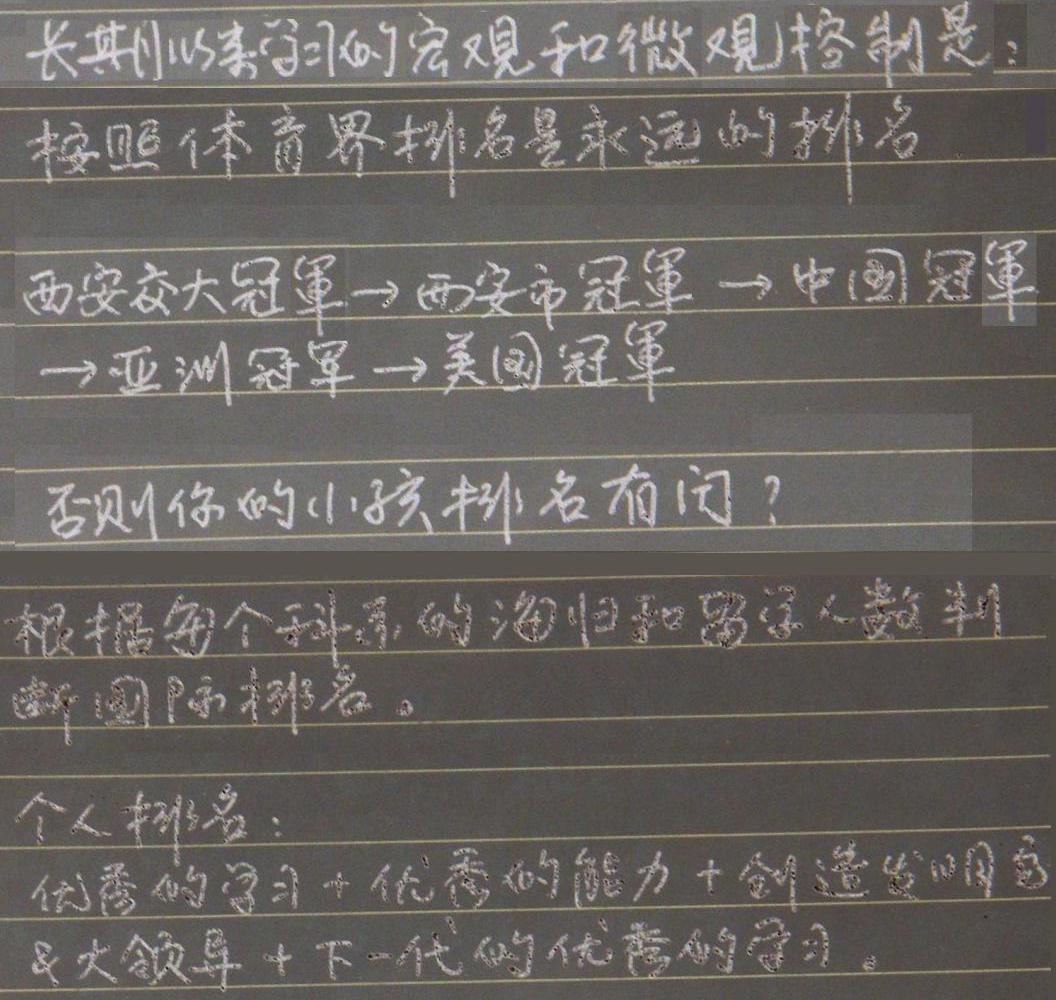 长期以来学习的宏观和微观控制是：
按照体育界排名是永远的排名.
西安交大冠軍→西安市冠軍→中国冠軍
→亚洲冠军→美国冠軍
否则你的小孩排名有问？
根据每个科系的海归和留学人数判
断国际排名。
个人排名：
优秀的学习+优秀的能力+创造发明家
&大领导+下一代的优秀的学习。